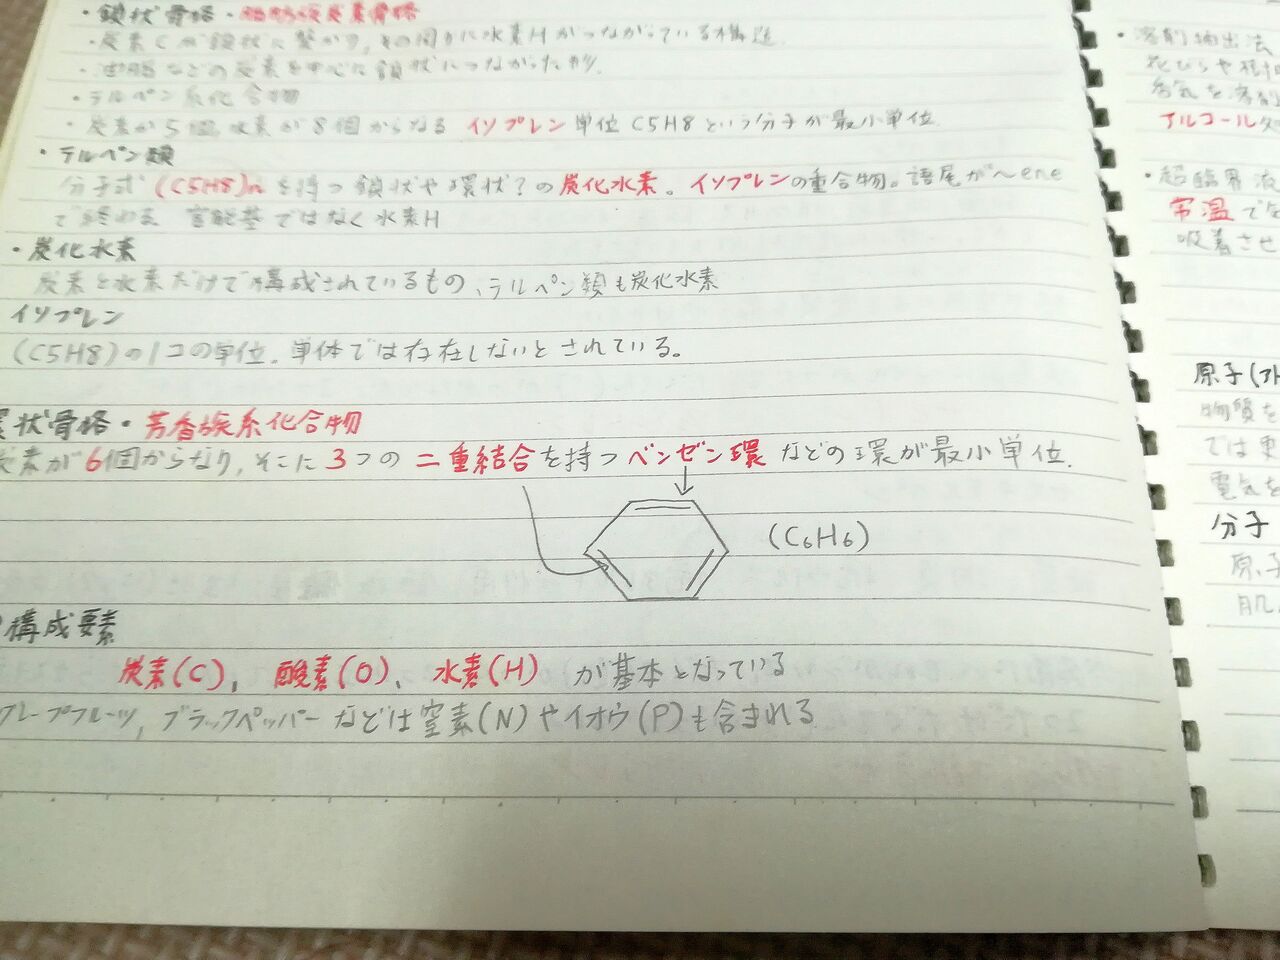 ・鎖状骨格・脂肪族炭素骨格
・炭素Cが鎖状に繋がり,その周りに水素Hがつながっている構造.
・油脂などの炭素を中心に鎖状につながった形.
・テルペン系化合物
・炭素が5個,水素が8個からなる イソプレン単位C5H8という分子が最小単位.
・テルペン類
分子式 (C5H8)n を持つ鎖状や環状?の炭化水素。イソプレンの重合物。語尾が〜ene
で終わる 官能基ではなく水素H
・炭化水素
炭素と水素だけで構成されているもの、テルペン類も炭化水素
イソプレン
(C5H8)の1コの単位.単体では存在しないとされている。
状骨格・芳香族系化合物
炭素が6個からなり,そこに3つの二重結合を持つベンゼン環などの環が最小単位.
(C6H6)
構成要素
炭素(C)、酸素(O)、水素(H) が基本となっている
グレープフルーツ,ブラックペッパーなどは窒素(N)やイオウ(P)も含まれる
・溶剤抽出法
花びらや樹
香気を溶剤
アルコール
・超臨界液
常温で
吸着させ
原子(アト
物質を
では更
電気を
分子
原子
肌